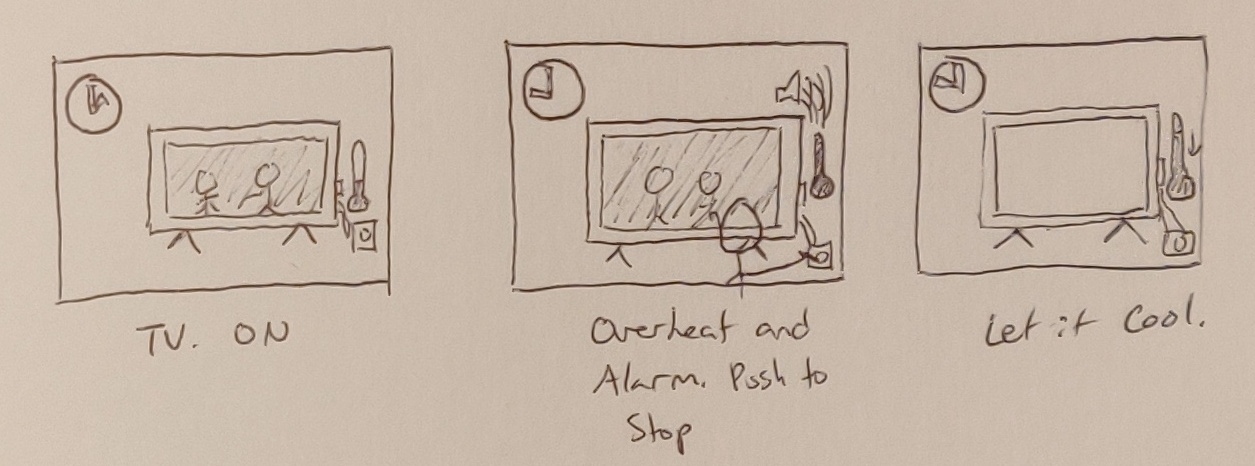 TV. ON
Overheat and
Alarm. Push to
Stop
Let it Cool.